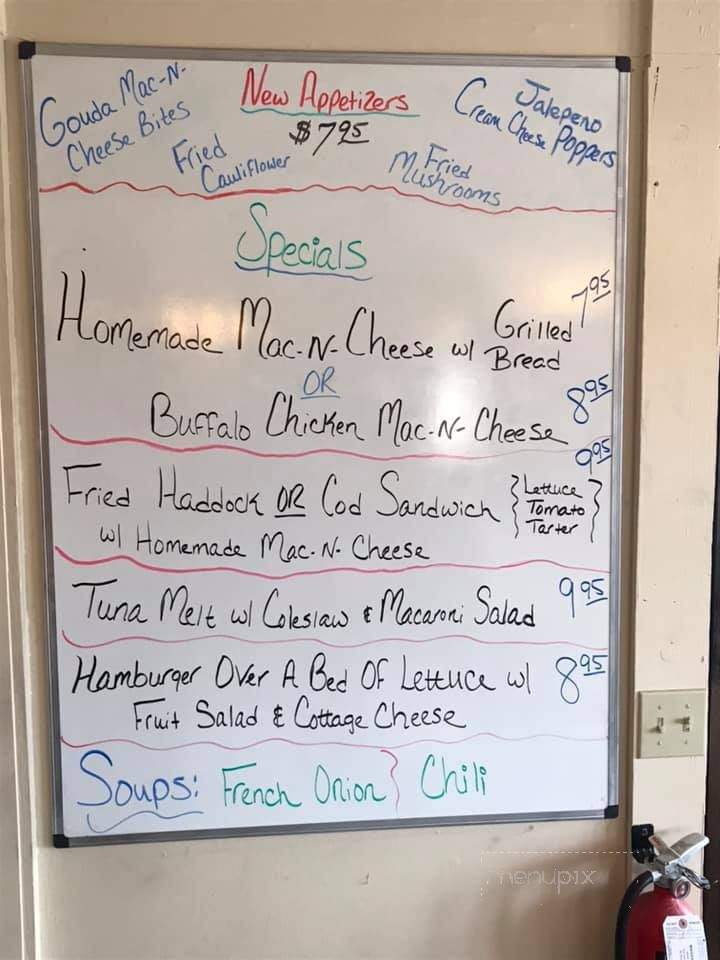 New Appetizers
$7.95
Gouda Mac-N-
Cheese Bites
Fried
Cauliflower
Fried
Mushrooms
Jalepeno
Cream Cheese Poppers
Specials
Homemade Mac-N-Cheese w/ Grilled Bread 7.95
OR
Buffalo Chicken Mac-N-Cheese 8.95
Fried Haddock OR Cod Sandwich { Lettuce Tomato Tarter } 9.95
w/ Homemade Mac-N-Cheese
Tuna Melt w/ Coleslaw & Macaroni Salad 9.95
Hamburger Over A Bed Of Lettuce w/ 8.95
Fruit Salad & Cottage Cheese
Soups: French Onion } Chili
menupix